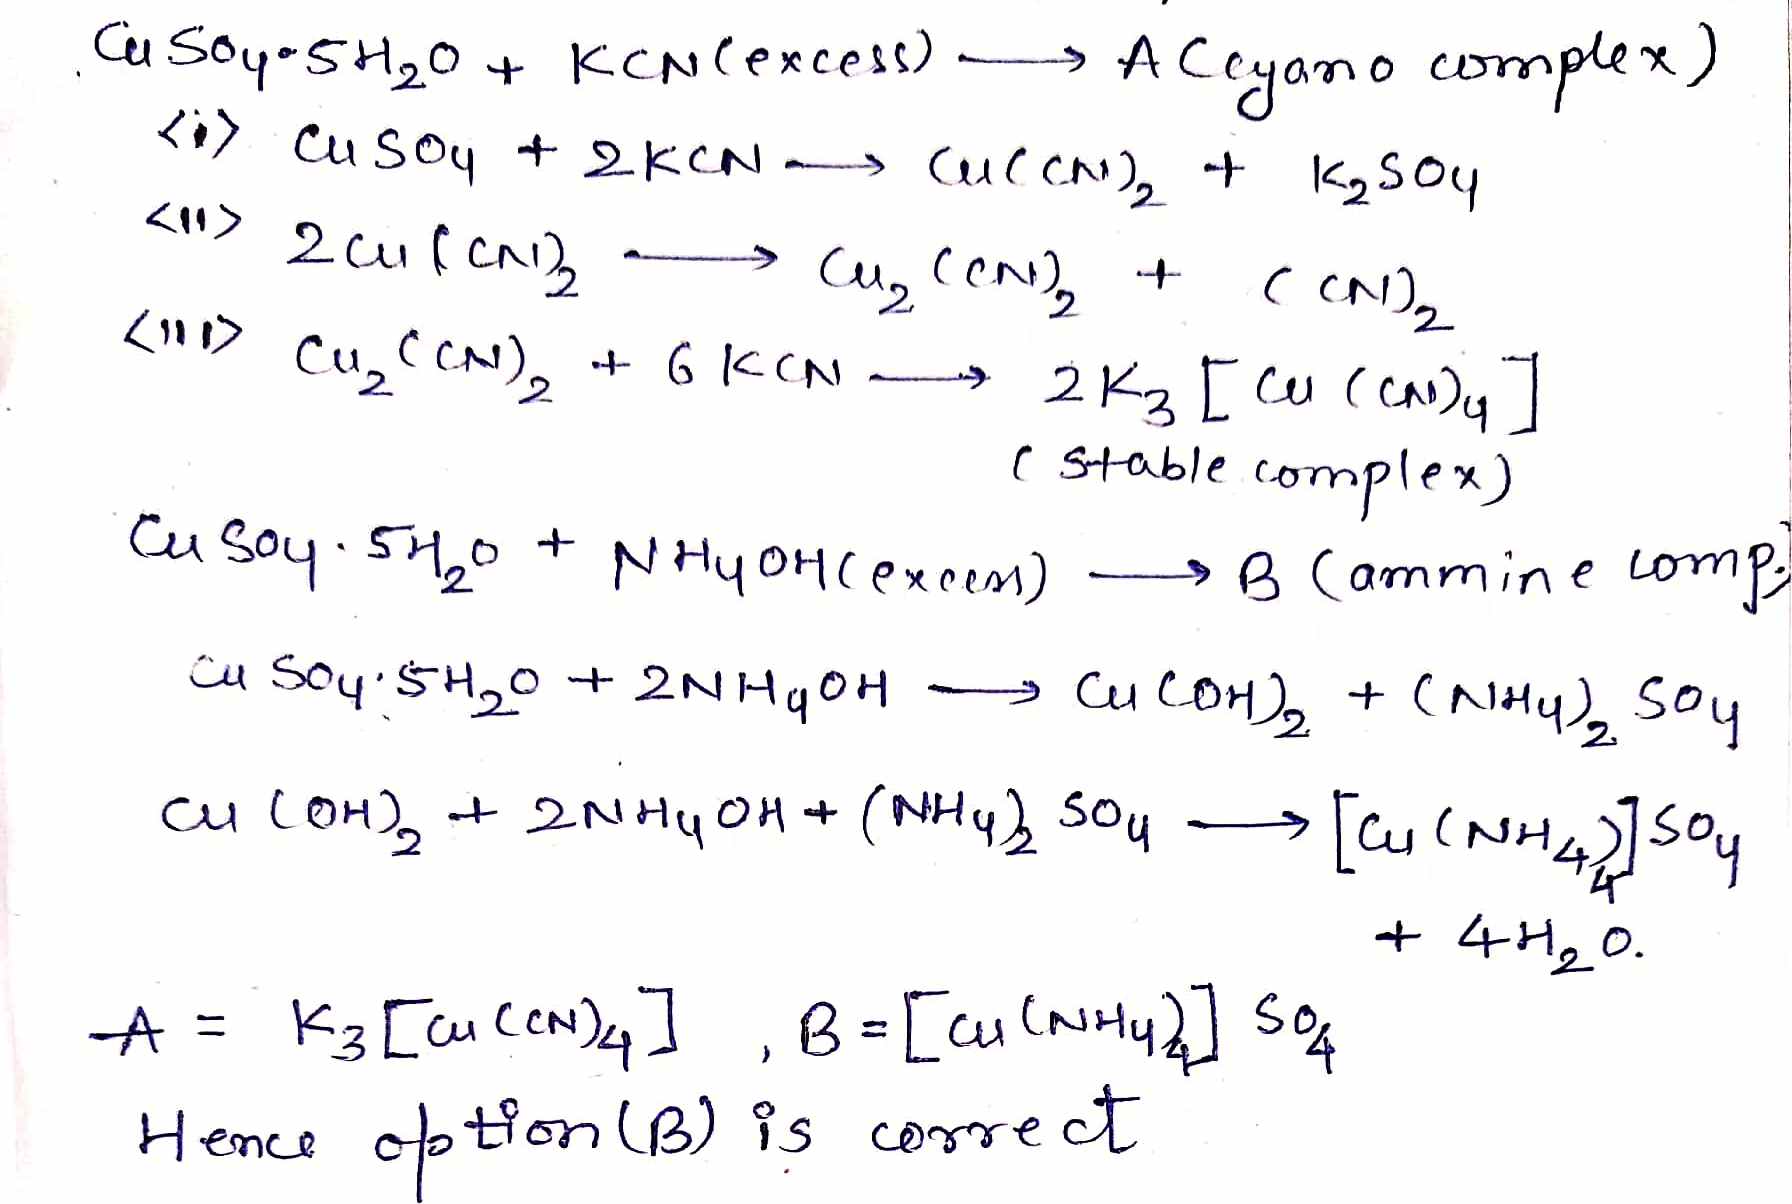 CuSO4·5H2O + KCN(excess) → A (cyano complex)
<i> CuSO4 + 2KCN → Cu(CN)2 + K2SO4
<ii> 2Cu(CN)2 → Cu2(CN)2 + (CN)2
<iii> Cu2(CN)2 + 6KCN → 2K3[Cu(CN)4]
(stable complex)
CuSO4·5H2O + NH4OH(excess) → B (ammine comp.
CuSO4·5H2O + 2NH4OH → Cu(OH)2 + (NH4)2SO4
Cu(OH)2 + 2NH4OH + (NH4)2SO4 → [Cu(NH4)4]SO4
+ 4H2O.
A = K3[Cu(CN)4] , B = [Cu(NH4)4]SO4
Hence option (B) is correct